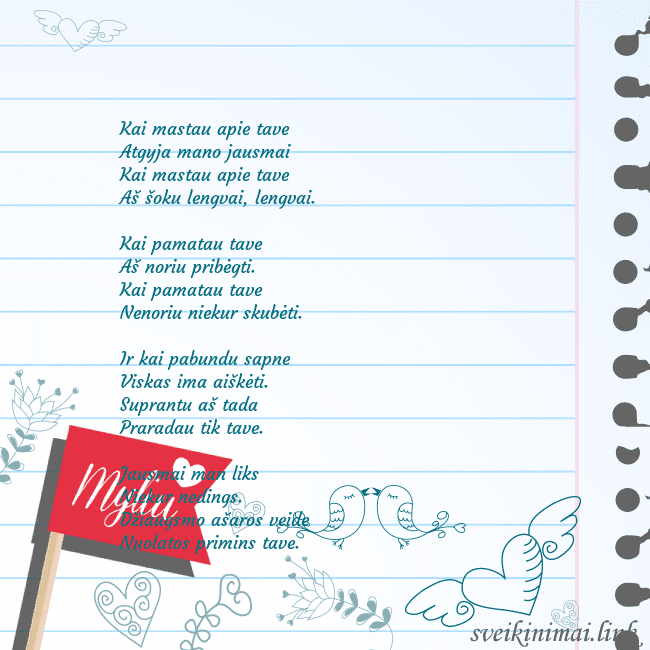 Kai mastau apie tave
Atgyja mano jausmai
Kai mastau apie tave
Aš šoku lengvai, lengvai.
Kai pamatau tave
Aš noriu pribėgti.
Kai pamatau tave
Nenoriu niekur skubėti.
Ir kai pabundu sapne
Viskas ima aiškėti.
Suprantu aš tada
Praradau tik tave.
Jausmai man liks
Niekur nedings.
Džiaugsmo ašaros veide
Nuolatos primins tave.
Myliu
sveikinimai.link